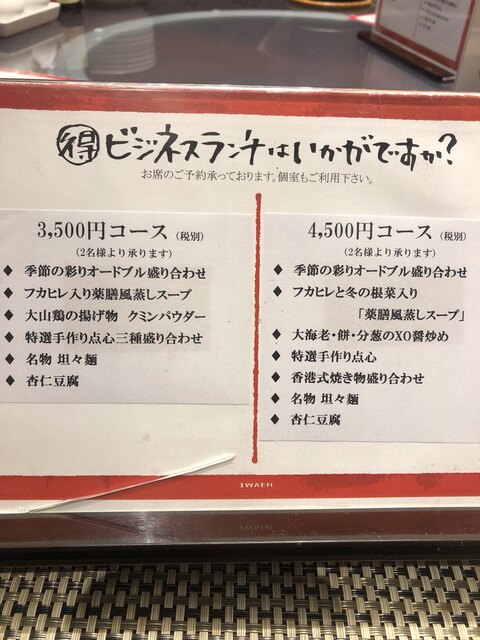 得ビジネスランチはいかがですか?
お席のご予約承っております。個室もご利用下さい。
3,500円コース (税別)
(2名様より承ります)
◆ 季節の彩りオードブル盛り合わせ
◆ フカヒレ入り薬膳風蒸しスープ
◆ 大山鶏の揚げ物 クミンパウダー
◆ 特選手作り点心三種盛り合わせ
◆ 名物 坦々麺
◆ 杏仁豆腐
4,500円コース (税別)
(2名様より承ります)
◆ 季節の彩りオードブル盛り合わせ
◆ フカヒレと冬の根菜入り
「薬膳風蒸しスープ」
◆ 大海老・餅・分葱のXO醤炒め
◆ 特選手作り点心
◆ 香港式焼き物盛り合わせ
◆ 名物 坦々麺
◆ 杏仁豆腐
IWAEN